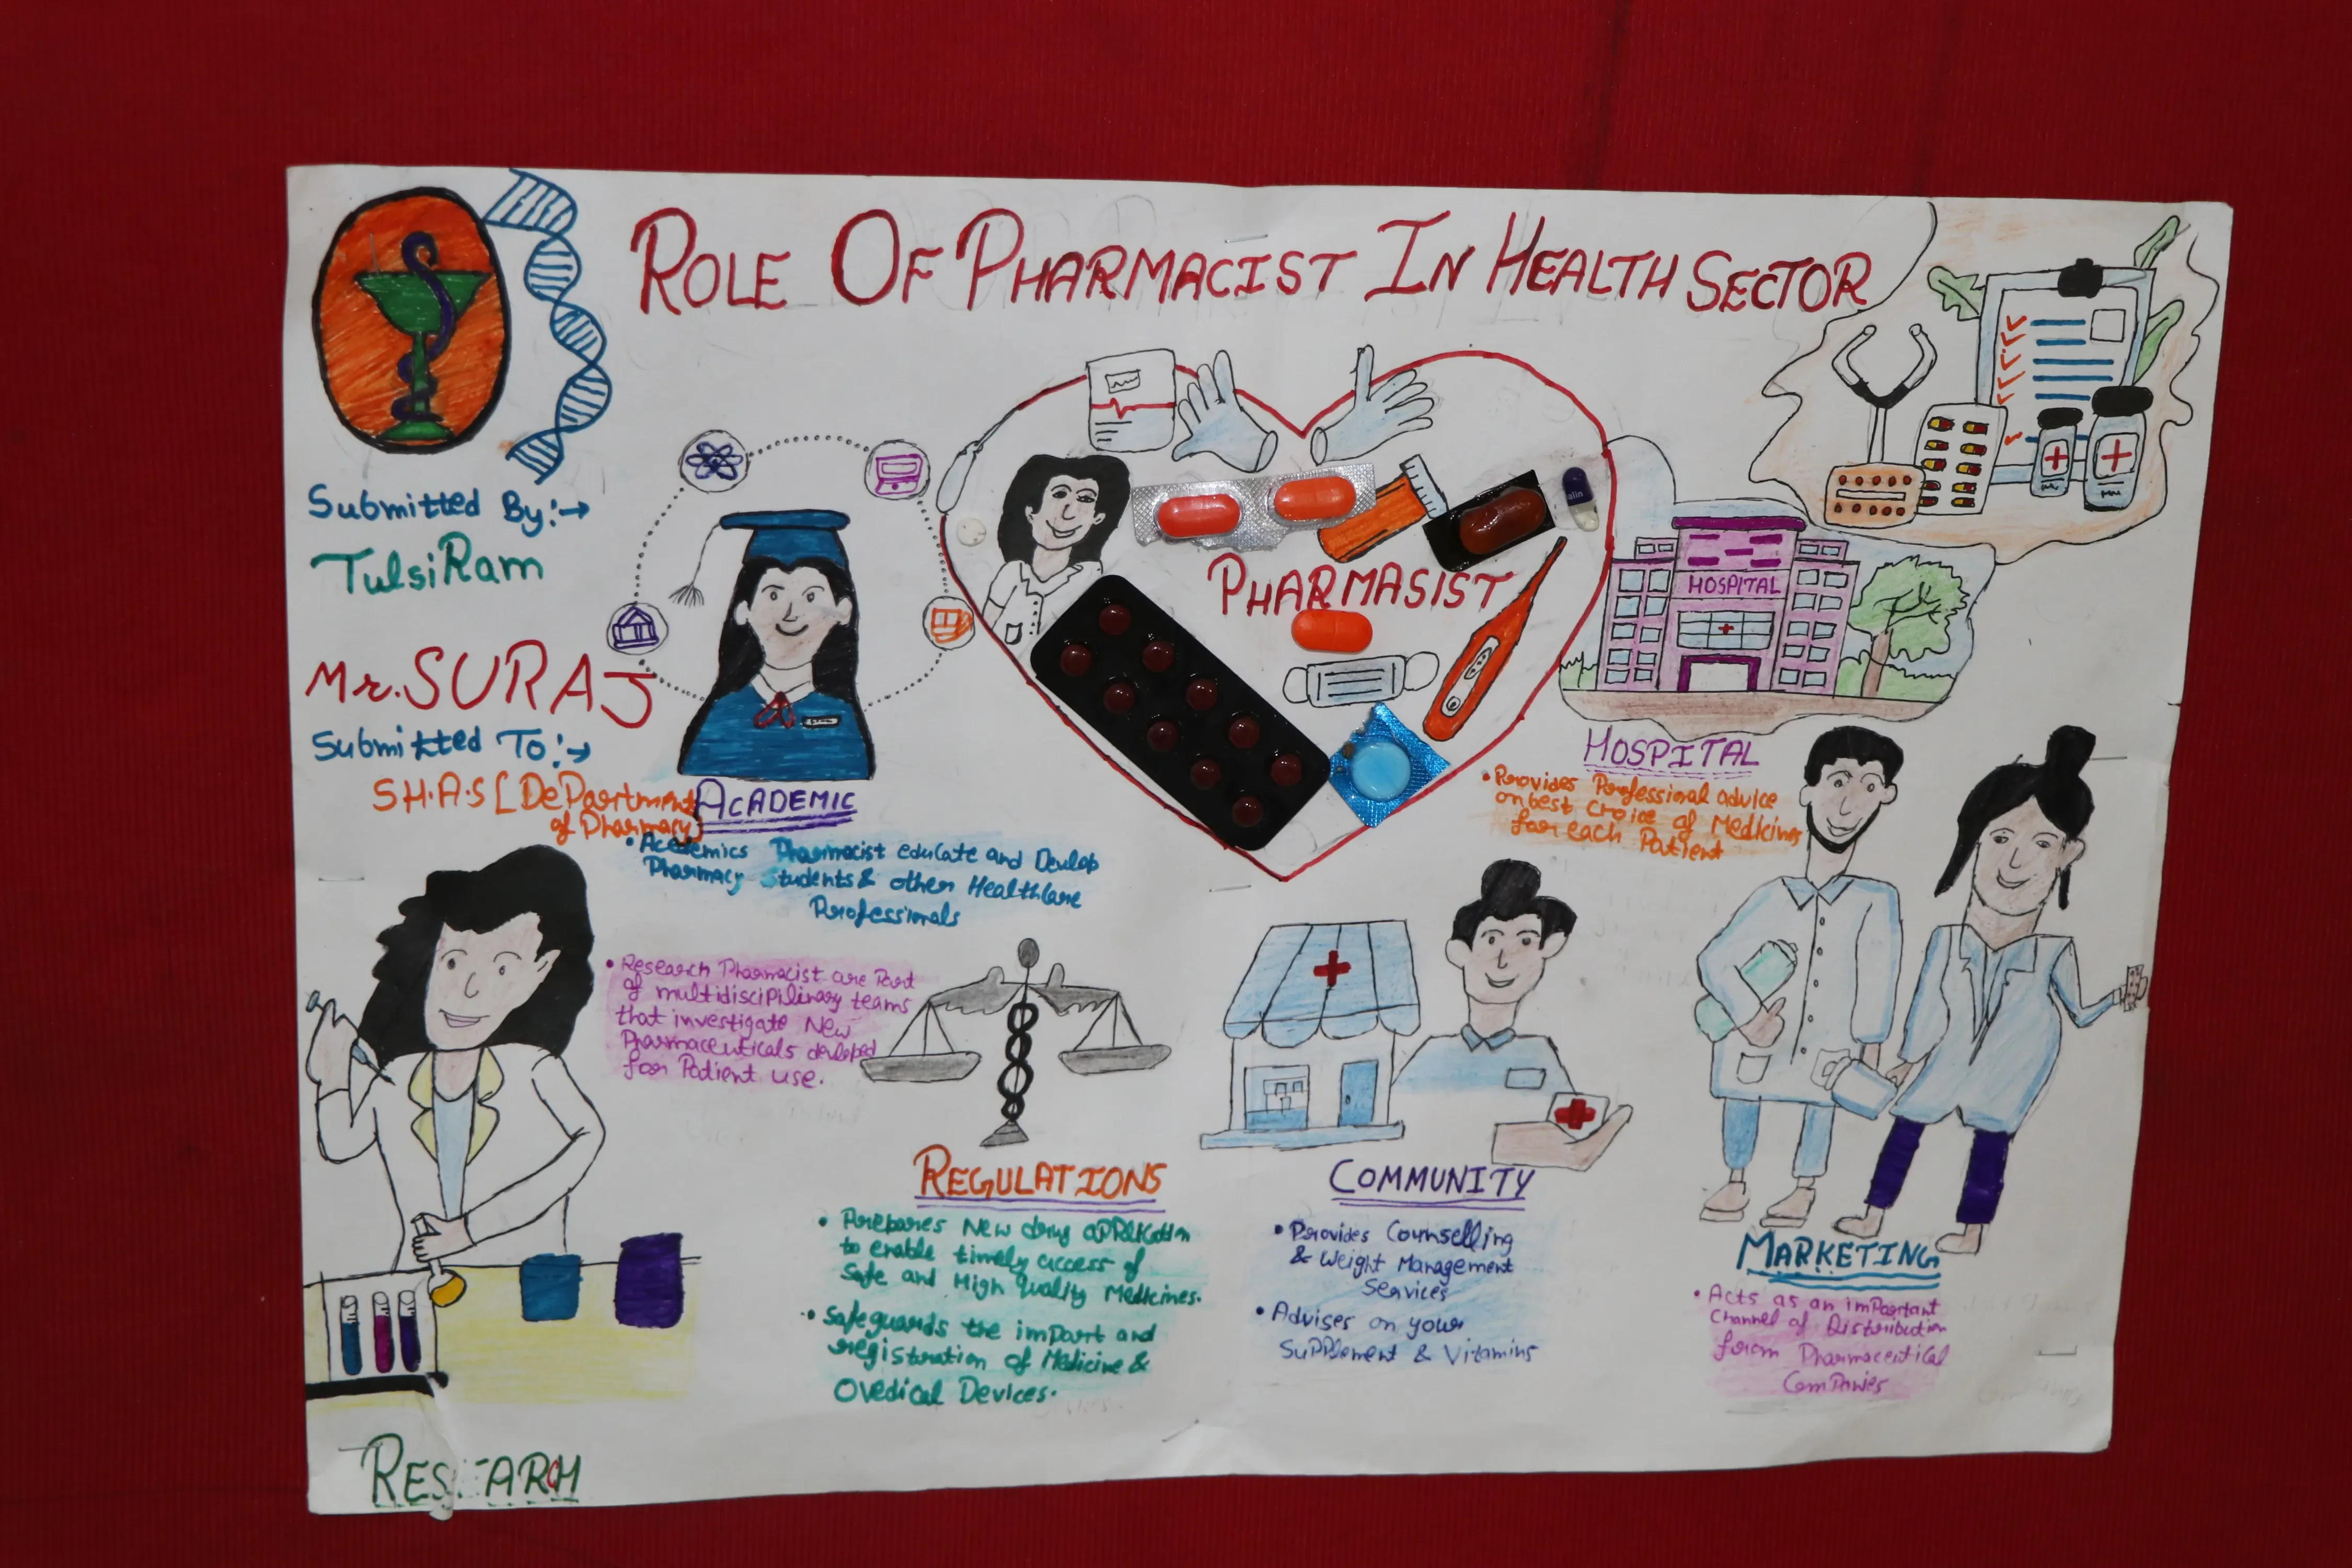 ROLE OF PHARMACIST IN HEALTH SECTOR
Submitted By:→
TulsiRam
Mr. SURAJ
Submitted To:→
S.H.A.S [DePartment
of Pharmacy]
PHARMASIST
alin
HOSPITAL
HOSPITAL
• Provides Professional advice
on best choice of Medicines
for each Patient
ACADEMIC
• Academics Pharmacist educate and Develop
Pharmacy Students & other Healthcare
Professionals
• Research Pharmacist are Part
of multidisciplinary teams
that investigate New
Pharmaceuticals developed
for Patient use.
RESEARCH
REGULATIONS
• Prepares New drug application
to enable timely access of
Safe and High Quality Medicines.
• Safeguards the import and
registration of Medicine &
Medical Devices.
COMMUNITY
• Provides Counselling
& Weight Management
Services
• Advises on your
Supplement & Vitamins
MARKETING
• Acts as an important
Channel of Distribution
form Pharmaceutical
Companies